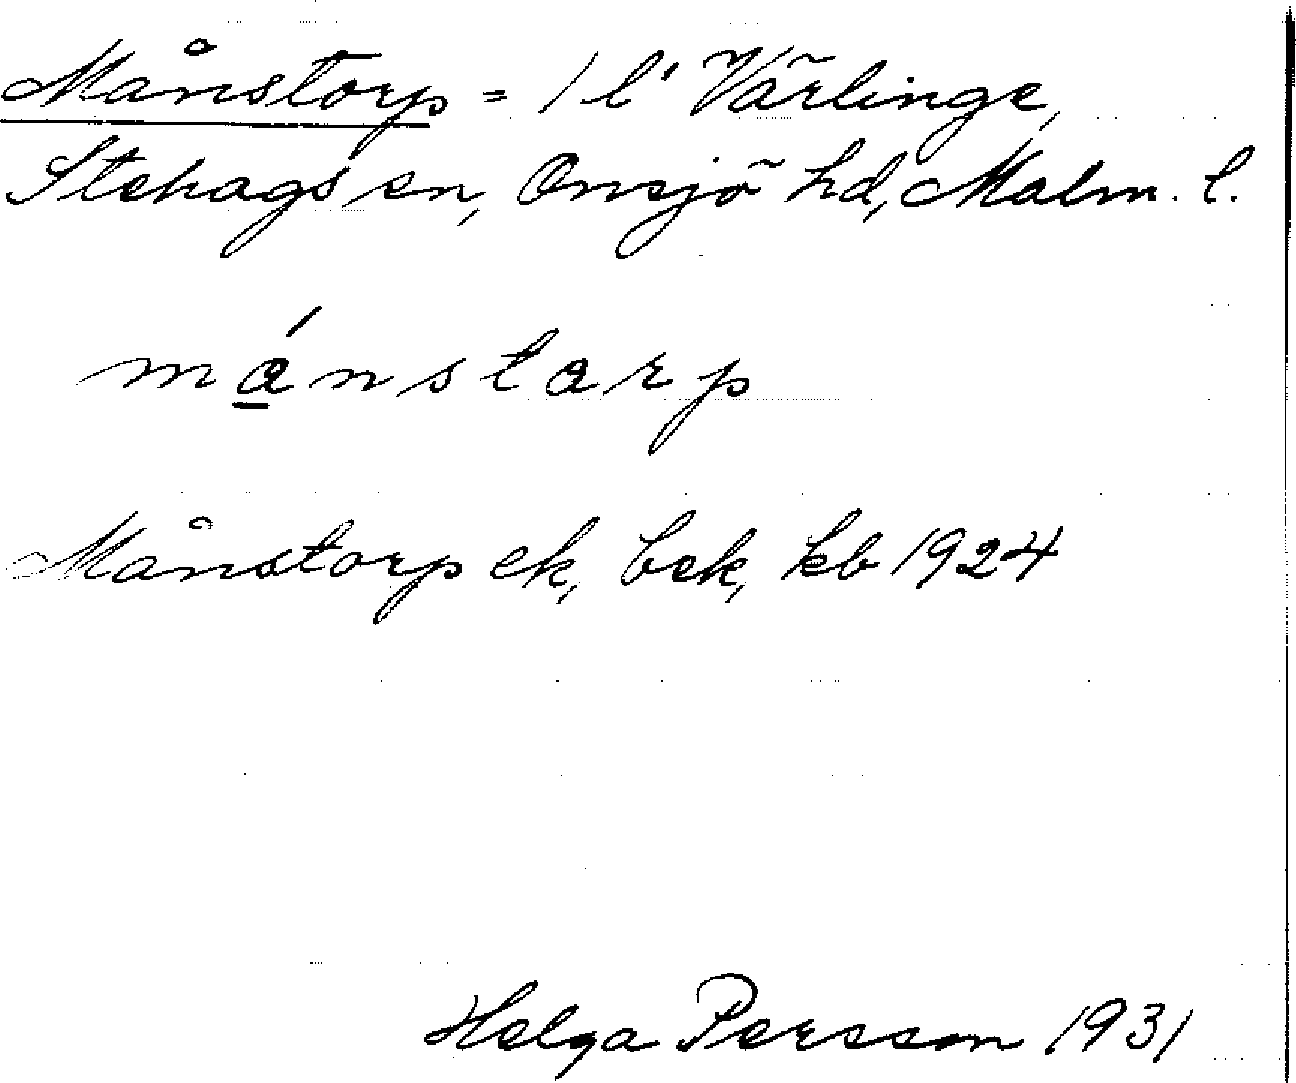 Månstorp = 1 l' Värlinge,
Stehags sn, Onsjö hd, Malm. l.
má̱nstarp
Månstorp ek, bek, kb 1924
Helga Persson 1931